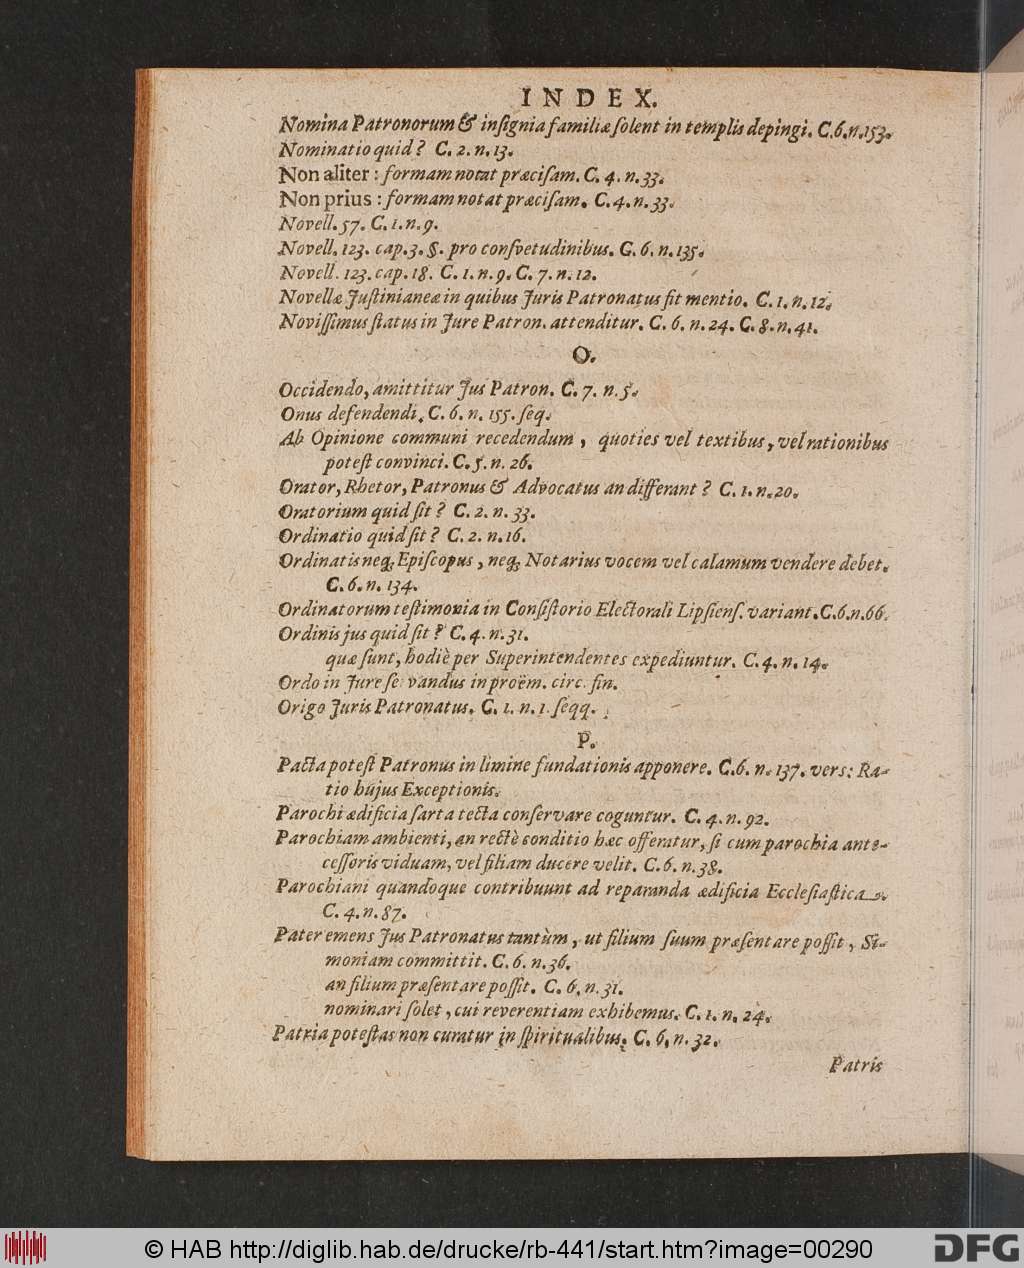 INDEX.
Nomina Patronorum & inſignia familiæ ſolent in templis depingi. C.6.n.153.
Nominatio quid? C. 2. n. 13.
Non aliter : formam notat præciſam. C. 4. n. 33.
Non prius : formam notat præciſam. C. 4. n. 33.
Novell. 57. C. 1. n. 9.
Novell. 123. cap. 3. §. pro conſvetudinibus. C. 6. n. 135.
Novell. 123. cap. 18. C. 1. n. 9. C. 7. n. 12.
Novellæ Juſtinianeæ in quibus Juris Patronatus fit mentio. C. 1. n. 12.
Noviſſimus ſtatus in Jure Patron. attenditur. C. 6. n. 24. C. 8. n. 41.
O.
Occidendo, amittitur Jus Patron. C. 7. n. 5.
Onus defendendi. C. 6. n. 155. ſeq.
Ab Opinione communi recedendum, quoties vel textibus, vel rationibus
poteſt convinci. C. 5. n. 26.
Orator, Rhetor, Patronus & Advocatus an differant? C. 1. n. 20.
Oratorium quid ſit? C. 2. n. 33.
Ordinatio quid ſit? C. 2. n. 16.
Ordinatis neq; Epiſcopus, neq; Notarius vocem vel calamum vendere debet.
C. 6. n. 134.
Ordinatorum teſtimonia in Conſiſtorio Electorali Lipſienſ. variant. C.6.n.66.
Ordinis jus quid ſit? C. 4. n. 31.
quæ ſunt, hodiè per Superintendentes expediuntur. C. 4. n. 14.
Ordo in Jure ſervandus in proëm. circ. fin.
Origo Juris Patronatus. C. 1. n. 1. ſeqq.
P.
Pacta poteſt Patronus in limine fundationis apponere. C.6. n. 137. vers: Ra-
tio hujus Exceptionis.
Parochi ædificia ſarta tecta conſervare coguntur. C. 4. n. 92.
Parochiam ambienti, an rectè conditio hæc offeratur, ſi cum parochia ante-
ceſſoris viduam, vel filiam ducere velit. C. 6. n. 38.
Parochiani quandoque contribuunt ad reparanda ædificia Eccleſiaſtica.
C. 4. n. 87.
Pater emens Jus Patronatus tantùm, ut filium ſuum præſentare poſſit, Si-
moniam committit. C. 6. n. 36.
an filium præſentare poſſit. C. 6. n. 31.
nominari ſolet, cui reverentiam exhibemus. C. 1. n. 24.
Patria poteſtas non curatur in ſpiritualibus. C. 6. n. 32.
Patris
© HAB http://diglib.hab.de/drucke/rb-441/start.htm?image=00290
DFG